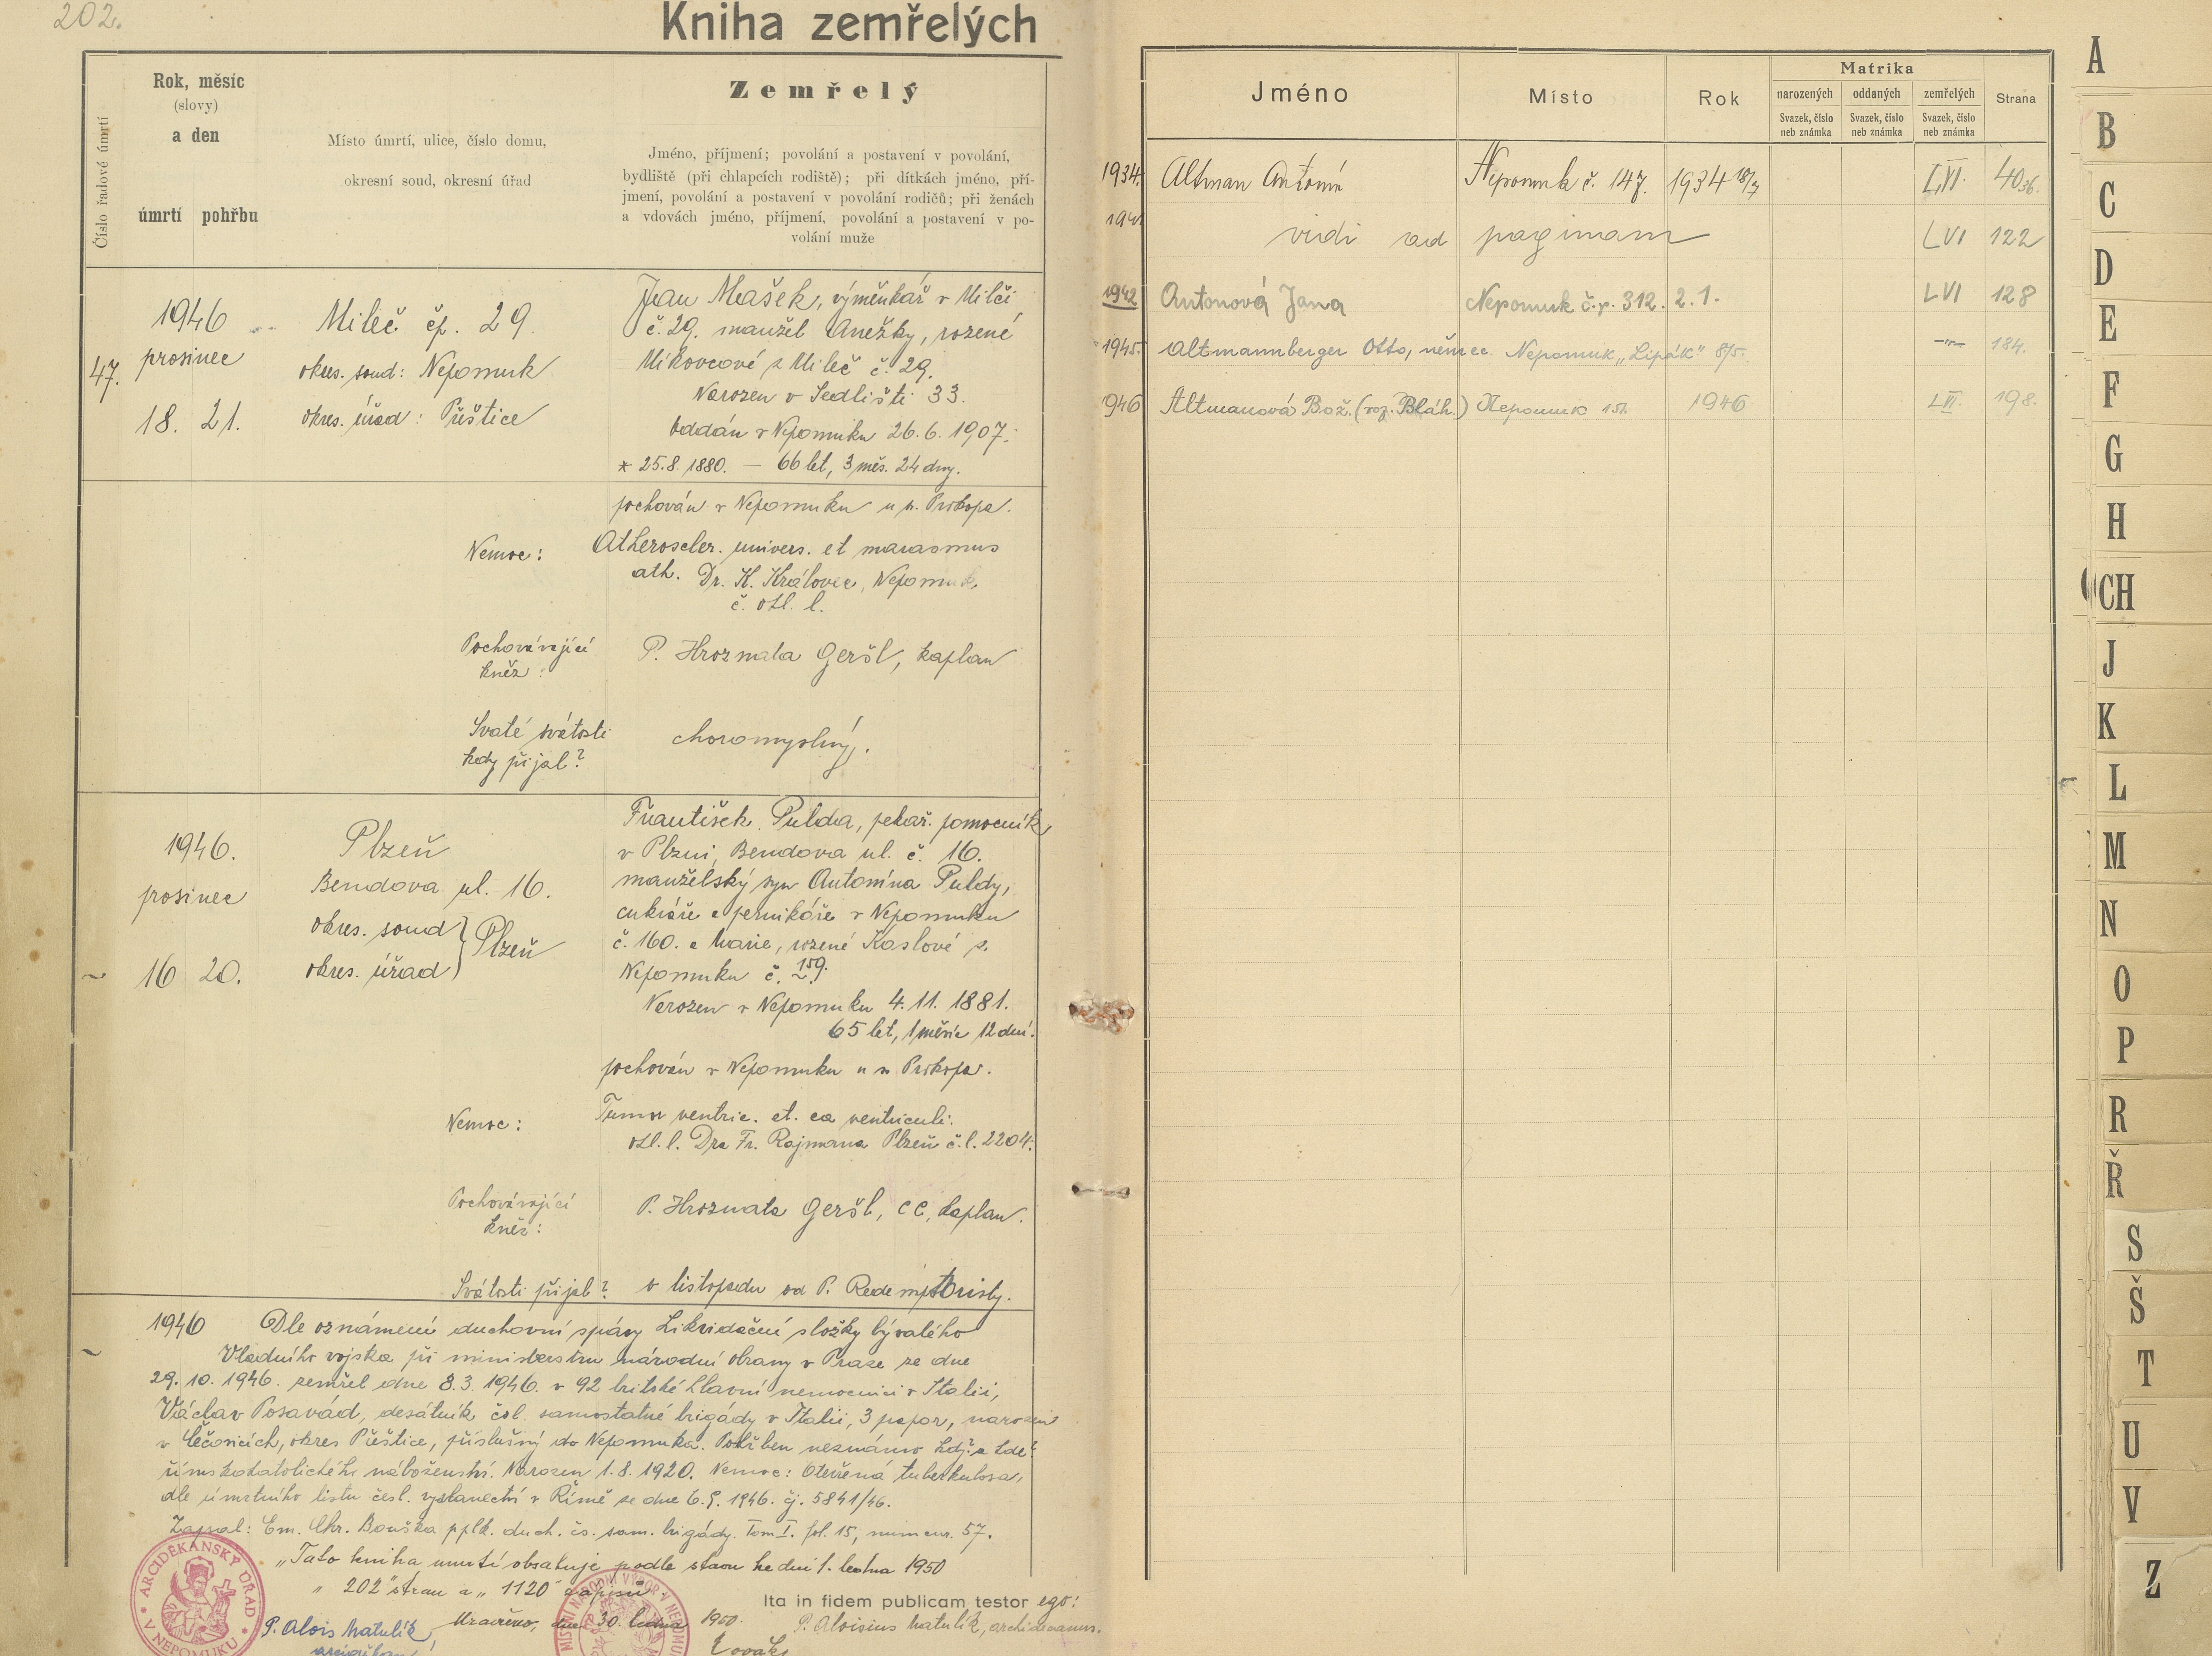 202.
Kniha zemřelých
Číslo řadové úmrtí
Rok, měsíc
(slovy)
a den
úmrtí pohřbu
Místo úmrtí, ulice, číslo domu,
okresní soud, okresní úřad
Zemřelý
Jméno, příjmení; povolání a postavení v povolání,
bydliště (při chlapcích rodiště); při dítkách jméno, pří-
jmení, povolání a postavení v povolání rodičů; při ženách
a vdovách jméno, příjmení, povolání a postavení v po-
volání muže
47.
1946
prosinec
18. 21.
Mileč čp. 29.
okres. soud: Nepomuk
okres. úřad: Přeštice
Jan Mašek, výměnkář v Milči
č. 29. manžel Anežky, rozené
Mikovcové z Mileč č. 29.
Narozen v Sedlišti 33.
Oddán v Nepomuku 26. 6. 1907.
* 25.8. 1880. — 66 let, 3 měs. 24 dny.
pochován v Nepomuku u s. Prokopa.
Nemoc: Atheroscler. univers. et marasmus
ath. Dr. K. Královec, Nepomuk
č. ohl. l.
Pochovávající
kněz:
P. Hroznata Geršl, kaplan
Svaté svátosti
kdy přijal?
choromyslný.
1946.
prosinec
~ 16 20.
Plzeň
Bendova ul. 16.
okres. soud
okres. úřad } Plzeň
František Pulda, pekař. pomocník
v Plzni, Bendova ul. č. 16.
manželský syn Antonína Puldy,
cukráře a perníkáře v Nepomuku
č. 160. a Marie, rozené Kaslové z
Nepomuku č. 159.
Narozen v Nepomuku 4. 11. 1881.
65 let, 1 měsíc 12 dní.
pochován v Nepomuku u s. Prokopa.
Nemoc: Tumor ventric. et. ca ventriculi.
ohl. l. Dra Fr. Rajmana Plzeň č. l. 2204.
Pochovávající
kněz:
P. Hroznata Geršl, CC, kaplan.
Svátosti přijal? v listopadu od P. Redemptoristy.
~
1946 Dle oznámení duchovní správy Likvidační složky bývalého
Vládního vojska při ministerstvu národní obrany v Praze ze dne
29. 10. 1946. zemřel dne 8. 3. 1946. v 92 britské hlavní nemocnici v Italii,
Václav Posavád, desátník čsl. samostatné brigády v Italii, 3 prapor, narozen
v Lečovicích, okres Přeštice, příslušný do Nepomuka. Pohřben neznámo kdy? a kde?
římskokatolického náboženství. Narozen 1. 8. 1920. Nemoc: Otevřená tuberkulosa,
dle úmrtního listu česl. vyslanectví v Římě ze dne 6. 9. 1946. čj. 5841/46.
Zapsal: Em. Chr. Bouška pplk. duch. čs. sam. brigády. Tom I. fol. 15, num cur. 57.
"Tato kniha úmrtí obsahuje podle stavu ke dni 1. ledna 1950
"202" stran a "1120" zápisů.
Uzavřeno, dne 30. ledna 1950.
P. Alois Matulík,
arciděkan
ARCIDĚKANSKÝ ÚŘAD V NEPOMUKU
MÍSTNÍ NÁRODNÍ VÝBOR V NEPOMUKU
Ita in fidem publicam testor ego:
P. Aloisius Matulík, archidecanus.
Jméno
Místo
Rok
Matrika
narozených
oddaných
zemřelých
Svazek, číslo
neb známka
Svazek, číslo
neb známka
Svazek, číslo
neb známka
Strana
1934. Altman Antonín Nepomuk č. 147. 1934 18/7 LVI. 40 36.
194 vidi ad paginam LVI 122
1942 Antonová Jana Nepomuk č.p. 312. 2. 1. LVI 128
1945. Altmannberger Otto, němec Nepomuk "Lipák" 8/5. —"— 184.
946 Altmanová Bož. (roz. Bláh.) Nepomuk 151. 1946 LVI. 198.
A
B
C
D
E
F
G
H
CH
J
K
L
M
N
O
P
R
Ř
S
Š
T
U
V
Z